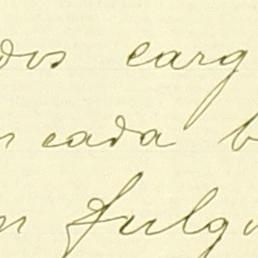 dos carg
n cada b
n fulgu